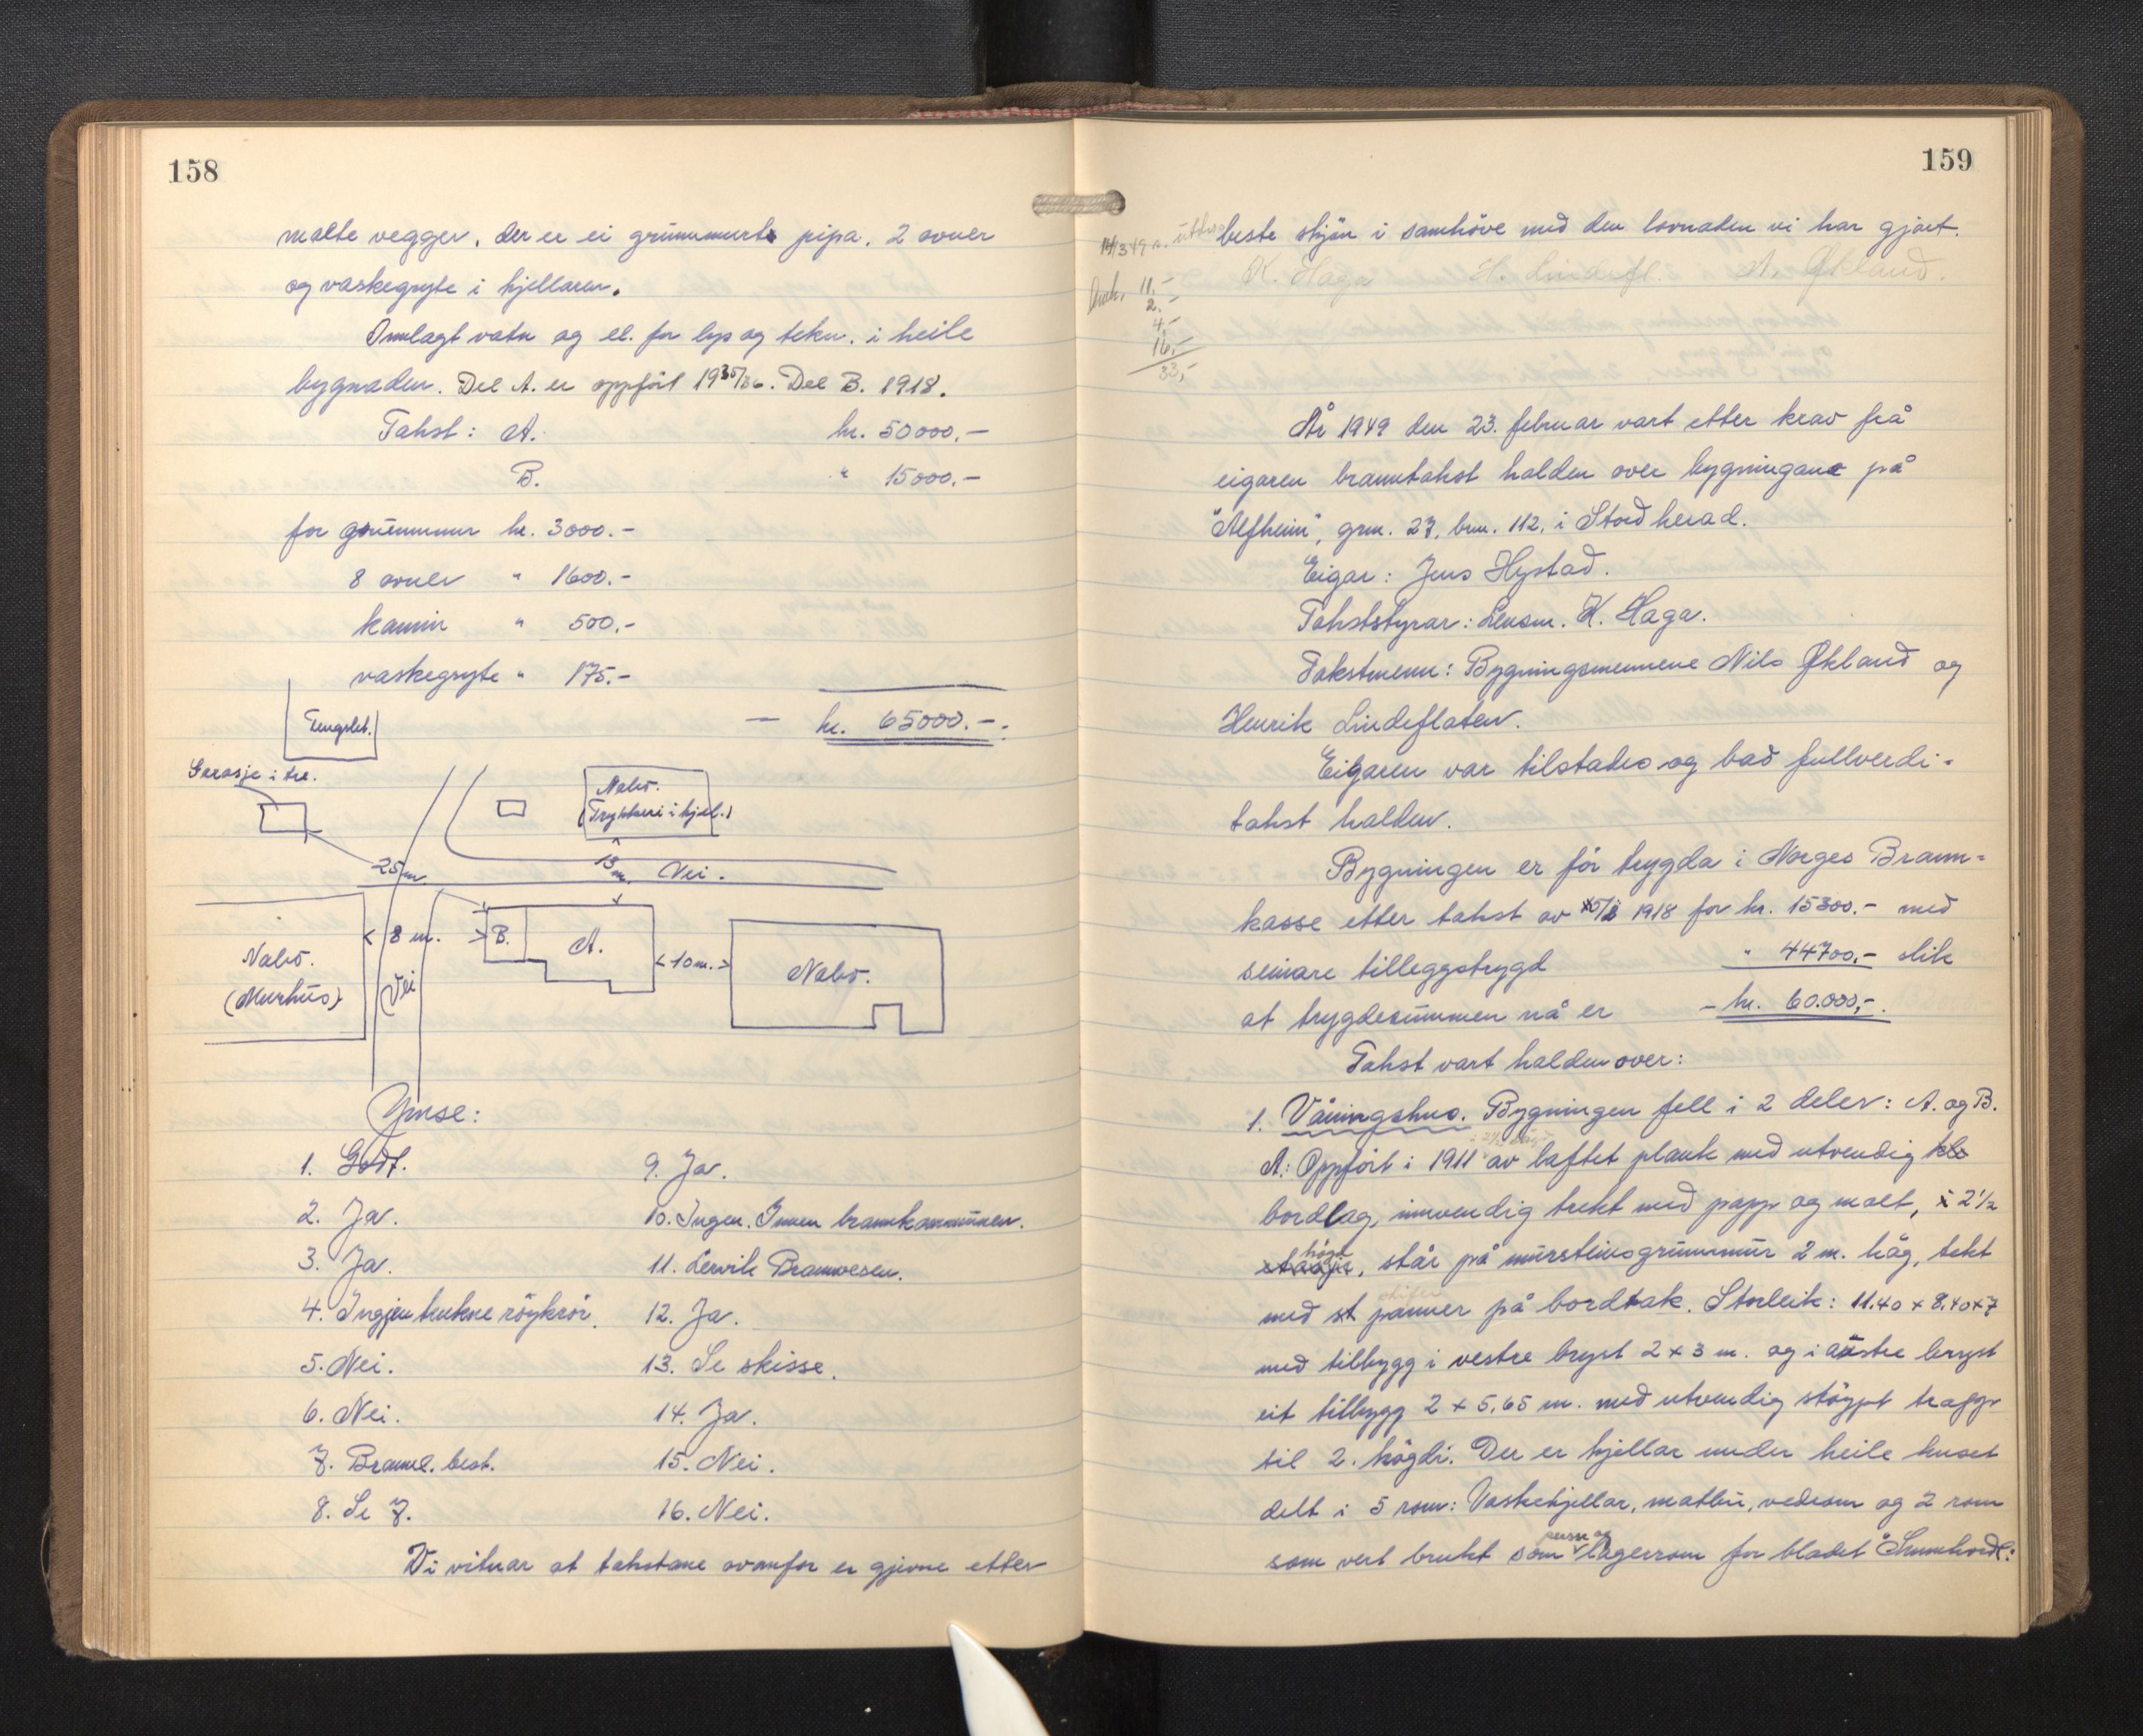 158
malte vegger. der er ei grunnmurt pipa. 2 ovner
og vaskegryte i kjellaren.
Innlagt vatn og el. for lys og tekn. i heile
bygnaden. Del A. er oppfört 1935/36. Del B. 1918.
Takst: A. kr. 50000.-
B. " 15000.-
for grunnmur kr. 3000.-
8 ovner " 1600.-
kamin " 500.-
vaskegryte " 175.-
- kr. 65000.-.
Fengslet.
Garasje i tre.
Nabo.
(Trykkeri i kjel.)
25 m.
13 m.
Vei.
8 m.
B.
A.
10 m.
Nabo.
(Murhus)
Vei
Nabo.
Ymse:
1. Godt.
2. Ja.
3. Ja.
4. Ingjen trekne röykrör.
5. Nei.
6. Nei.
7. Brannl. best.
8. Se 7.
9. Ja.
10. Ingen. Innen brannkommunen.
11. Lervik Brannvesen.
12. Ja.
13. Se skisse.
14. Ja.
15. Nei.
16. Nei.
Vi vitnar at takstane ovanfor er gjevne etter
159
beste skjön i samhöve med den lovnaden vi har gjort.
K. Haga H. Lindefl. N. Økland.
11.-
2.-
4.-
16.-
33,-
År 1949 den 23. februar vart etter krav frå
eigaren branntakst halden over bygningane på
"Alfheim", grn. 27, brn. 112, i Stord herad.
Eigar: Jens Hystad.
Takststyrar: Lensm. K. Haga.
Takstmenn: Bygningsmennene Nils Økland og
Henrik Lindeflaten.
Eigaren var tilstades og bad fullverdi-
takst halden.
Bygningen er för trygda i Norges Brann-
kasse etter takst av 1918 for kr. 15300.- med
seinare tilleggstrygd " 44700,- slik
at trygdesummen nå er - kr. 60.000,-.
Takst vart halden over:
1. Våningshus. Bygningen fell i 2 deler: A. og B.
A: Oppfört i 1911 av laftet plank med utvendig kle
bordlag, innvendig trekt med papp og malt, i 2 1/2
etasje högd, står på mursteinsgrunnmur 2 m. håg, tekt
med st skifer panner på bordtak. Storleik: 11.40 x 8.40 x 7
med tilbygg i vestre bryst 2 x 3 m. og i austre bryst
eit tilbygg 2 x 5,65 m. med utvendig stöypt trapp
til 2. högdi. Der er kjellar under heile huset
delt i 5 rom: Vaskekjellar, matbu, vedrom og 2 rom
som vert brukt som presse og lagerrom for bladet "Sunnhordl.: